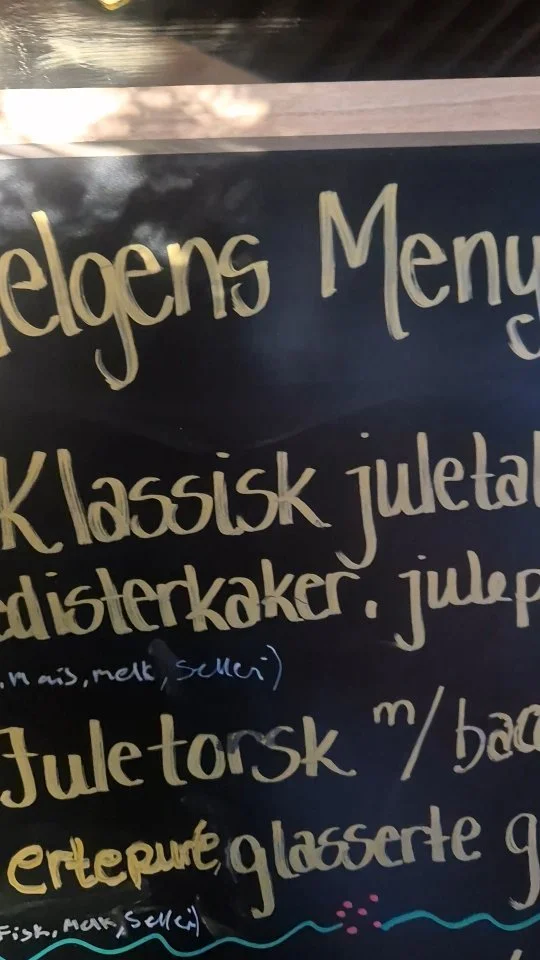 elgens Meny
Klassisk juletal
edisterkaker. julep
, Mais, melk, Selleri)
Juletorsk m/ bac
ertepuré, glasserte g
Fisk, Melk, Selleri)